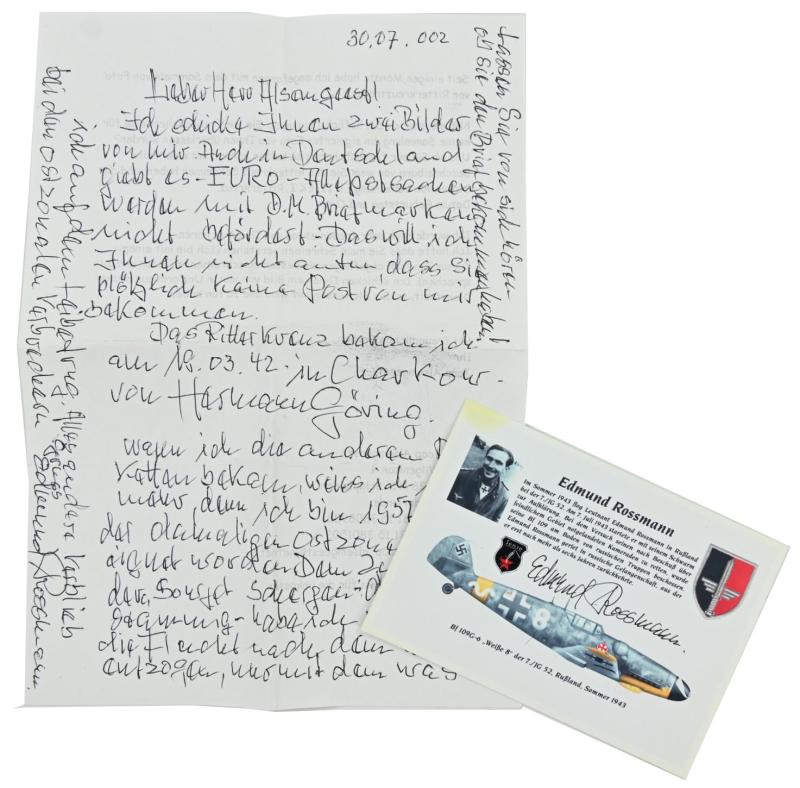 30.07.002
Lieber Herr
Ich schicke Ihnen zwei Bilder
von mir. Auch in Deutschland
giebt es - EURO - Alle Postsachen
werden mit D.M. Briefmarken
nicht befördert - Das will ich
Ihnen nicht antun dass Sie
plötzlich keine Post von mir
bekommen.
Das Ritterkreuz bekam ich
am 19.03.42. in Charkow -
von Hermann Göring.
wann ich die anderen
bekam, weiss ich
mehr, denn ich bin 1952
der damaligen Ostzone
worden. Dem
Sowjet Schergen
habe ich
die Flucht nach dem
entzogen, nur mit dem was
ich auf dem Leib trug. Alles andere verblieb
bei den ostzonalen Verbrechern
Edmund Rossmann.
Lassen Sie von sich hören
ob Sie den Brief bekommen haben!
Edmund Rossmann
Im Sommer 1943 flog Leutnant Edmund Rossmann in Rußland
bei der 7./JG 52. Am 7. Juli 1943 startete er mit seinem Schwarm
zur Aufklärung. Bei dem Versuch seinen nach Beschuß über
feindlichem Gebiet notgelandeten Kameraden zu retten, wurde
seine Bf 109 am Boden von russischen Truppen beschossen.
Edmund Rossmann geriet in russische Gefangenschaft, aus der
er erst nach mehr als sechs Jahren zurückkehrte.
Edmund Rossmann.
8
Bf 109G-6 „Weiße 8“ der 7./JG 52, Rußland, Sommer 1943